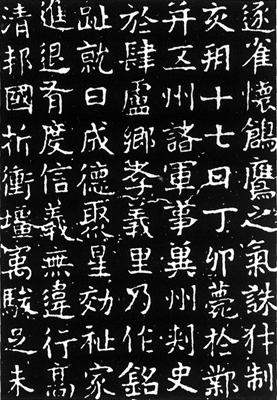 逐雀懷鷹之氣誅犲制
亥朔十七日丁卯薨於鄴
并五州諸軍事冀州刾史
於肆盧鄉孝義里乃作銘
趾就日成德聚星効祉家
進退有度信義無違行高
清邦國折衝壃寓駿足未